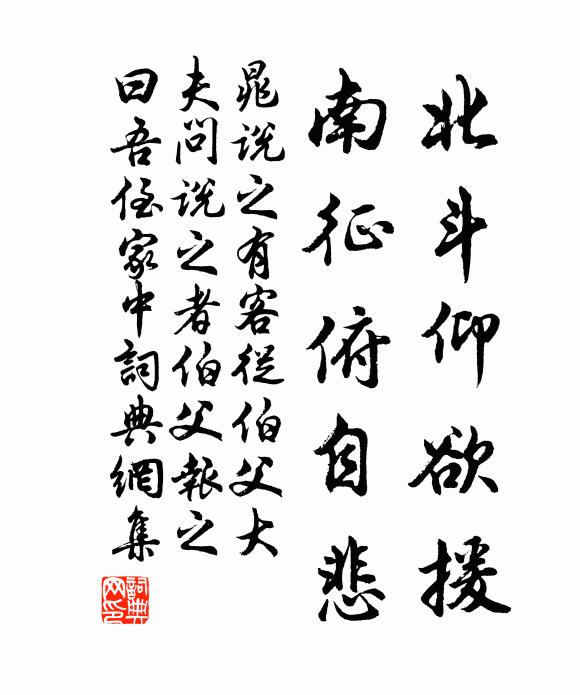 北斗仰欲援
南征俯自悲
晁说之有客從伯父大
夫問说之者伯父報之
曰吾侄家中詞典網集
詞典
网印